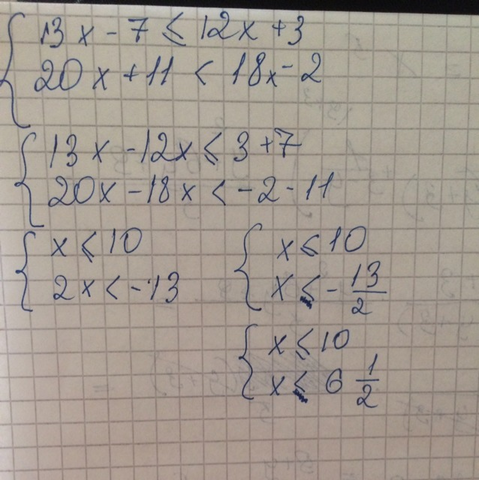 13x - 7 ≤ 12x + 3
20x + 11 < 18x - 2
13x - 12x ≤ 3 + 7
20x - 18x < -2 - 11
x ≤ 10
2x < -13
x ≤ 10
x ≤ - 13/2
x ≤ 10
x ≤ 6 1/2